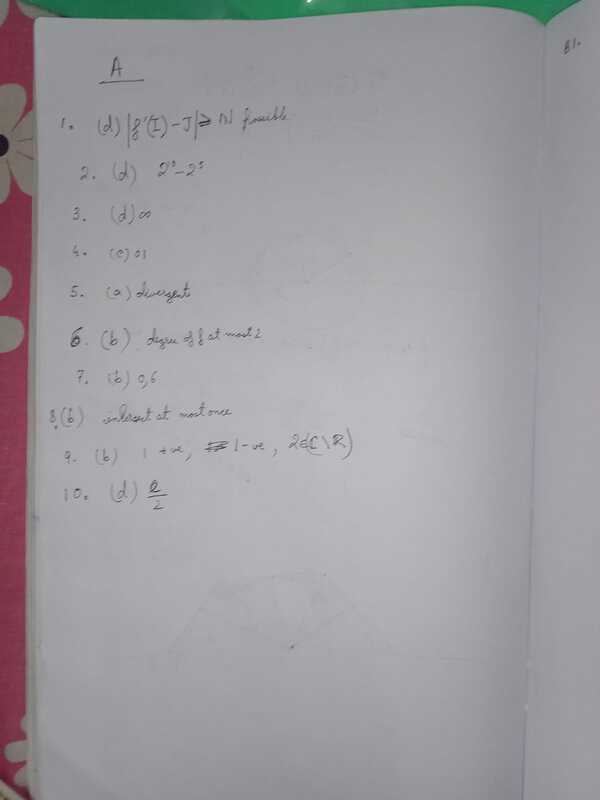 A
1. (d) |f'(I) - J| ≥ N possible
2. (d) 2⁹ - 2⁵
3. (d) ∞
4. (c) 03
5. (a) divergent
6. (b) degree of f at most 2
7. (b) 0,6
8. (b) intersect at most once
9. (b) 1 +ve, 1 -ve, 2∈(ℂ\ℝ)
10. (d) e/2
B1.